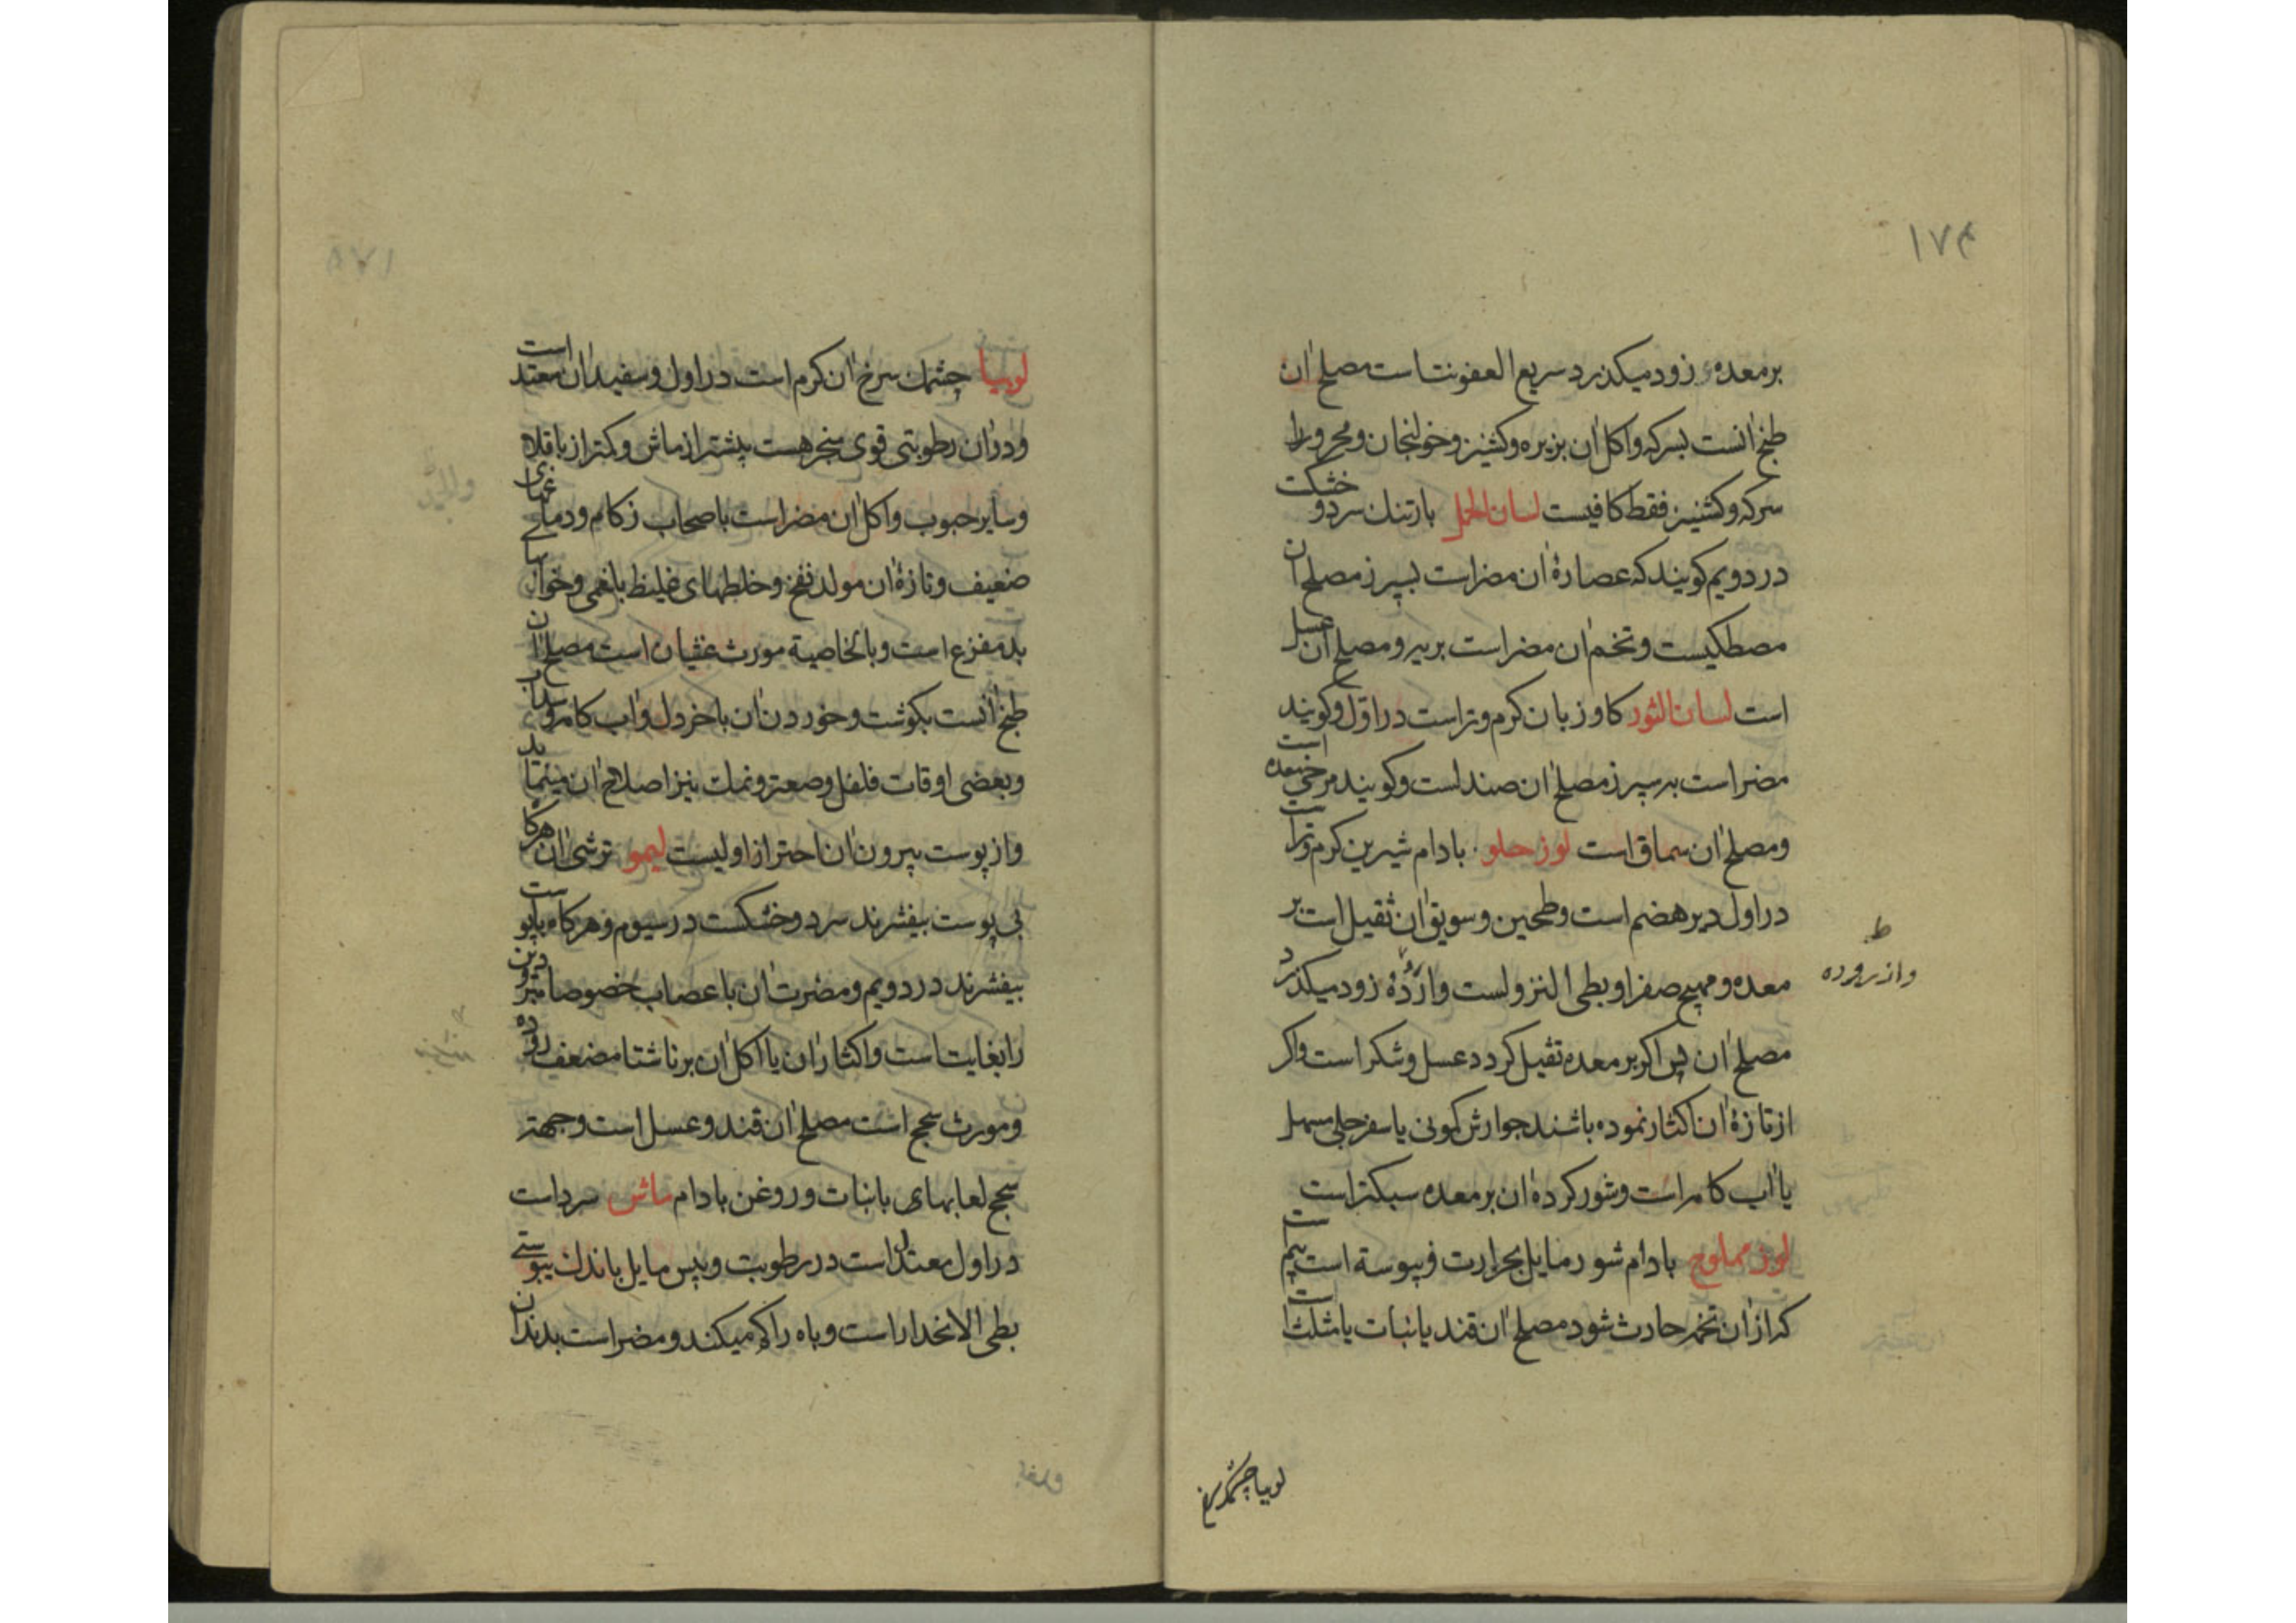 ۱۷۴
بر معده زود میکذرد سریع العفونت است مصلح ان
طبخ انست بسرکه واکل ان بزیره وکشنیز وخولنجان ومحرورا
سرکه وکشنیز فقط کافیست لسان الحمل بارتنک سرد و خشکست
در دویم کویند که عصارهٔ ان مضر است بسپرز مصلح ان
مصطکیست وتخم ان مضر است بریه ومصلح ان عسل
است لسان الثور کاو زبان کرم وتر است در اوّل وکویند
مضر است بر سپرز مصلح ان صندلست وکویند مرخی معده است
ومصلح ان سماق است لوز حلو بادام شیرین کرم وتر است
در اول دیر هضم است وطحین وسویق ان ثقیل است بر
معده ومهیج صفرا وبطی النزولست واز رُدهٔ زود میکذرد
ط
واز روده
مصلح ان پس اکر بر معده ثقیل کردد عسل وشکر است واکر
از تازهٔ ان اکثار نموده باشند جوارش کمونی یا سفرجلی مسهل
یا اب کامه است وشور کرده ان بر معده سبکتر است
لوز مملوح بادام شور مایل بحرارت و یبوسة است بیم
که از ان تخمه حادث شود مصلح ان قند یا نبات یا مثلث است
لوبیا چشمک سرخ
لوبیا چشمک سرخ ان کرم است در اول وسفید ان معتد است
ودر ان رطوبتی قوی هست بیشتر از ماش وکمتر از باقلاه
وسایر حبوب واکل ان مضر است باصحاب زکام ودماغهای
ضعیف وتازهٔ ان مولد نفخ وخلطهای غلیظ بلغمی وخوابها
بد مفزع است وبالخاصیة مورث غثیان است مصلح ان
طبخ انست بکوشت وخوردن ان با خردل واب کامه وسداب
وبعضی اوقات فلفل وصعتر ونمک نیز اصلاح ان مینماید
واز پوست بیرون ان احتراز اولیست لیمو ترشی ان هرکاه
بی پوست بیفشرند سرد وخشکست در سیوم وهرکاه با پوست
بیفشرند در دویم ومضرت ان باعصاب خصوصا مبرودین
را بغایت است واکثار ان یا اکل ان بر ناشتا مضعف روده
ومورث سحج است مصلح ان قند وعسل است وجهة
سحج لعابهای با نبات وروغن بادام ماش سرد است
در اول معتدل است در رطوبت ویبس مایل باندک یبوستی
بطی الانحدار است وباه را کم میکند ومضر است بدندان